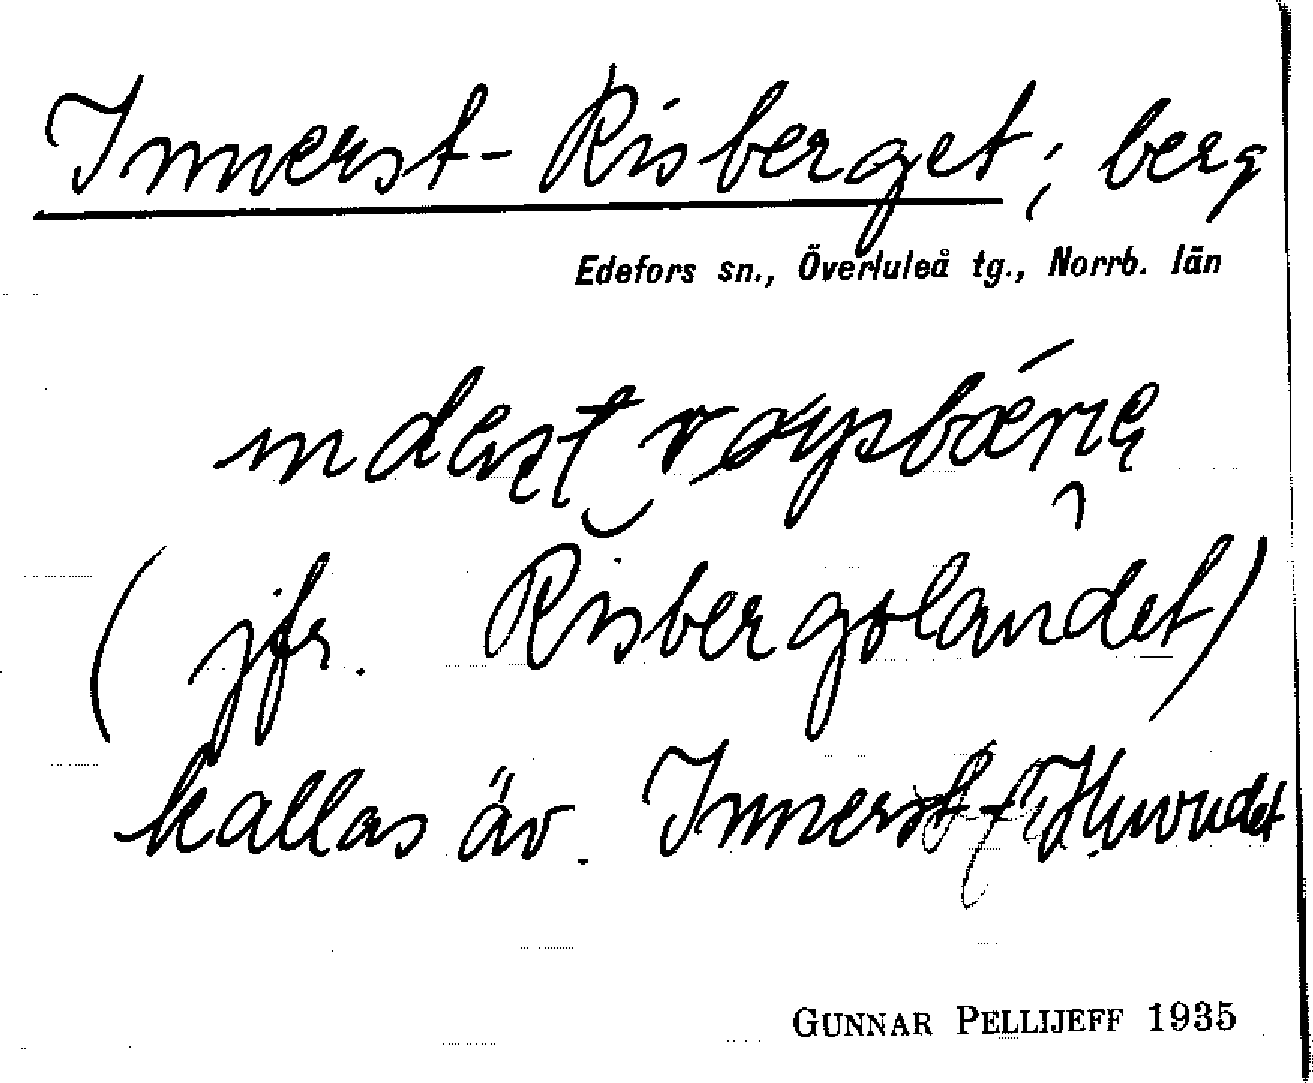 Innerst-Risberget; berg
Edefors sn., Överluleå tg., Norrb. län
(jfr. Risbergslandet)
kallas äv. Innerst-Huvudet
GUNNAR PELLIJEFF 1935